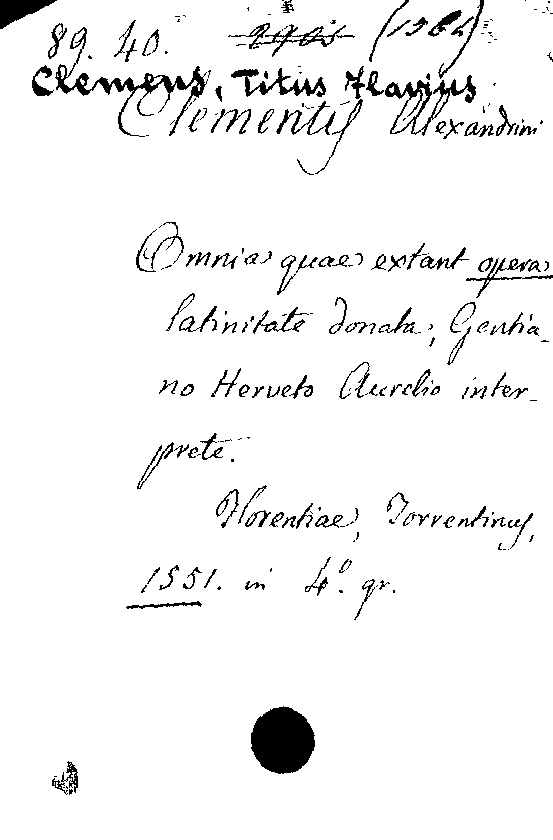 89. 40. 2905 (1564)
Clemens, Titus Flavius
Clementis Alexandrini
Omnia quae extant opera
latinitate donata, Gentia-
no Herveto Aurelio inter-
prete.
Florentiae, Torrentinus,
1551. in 4º. gr.